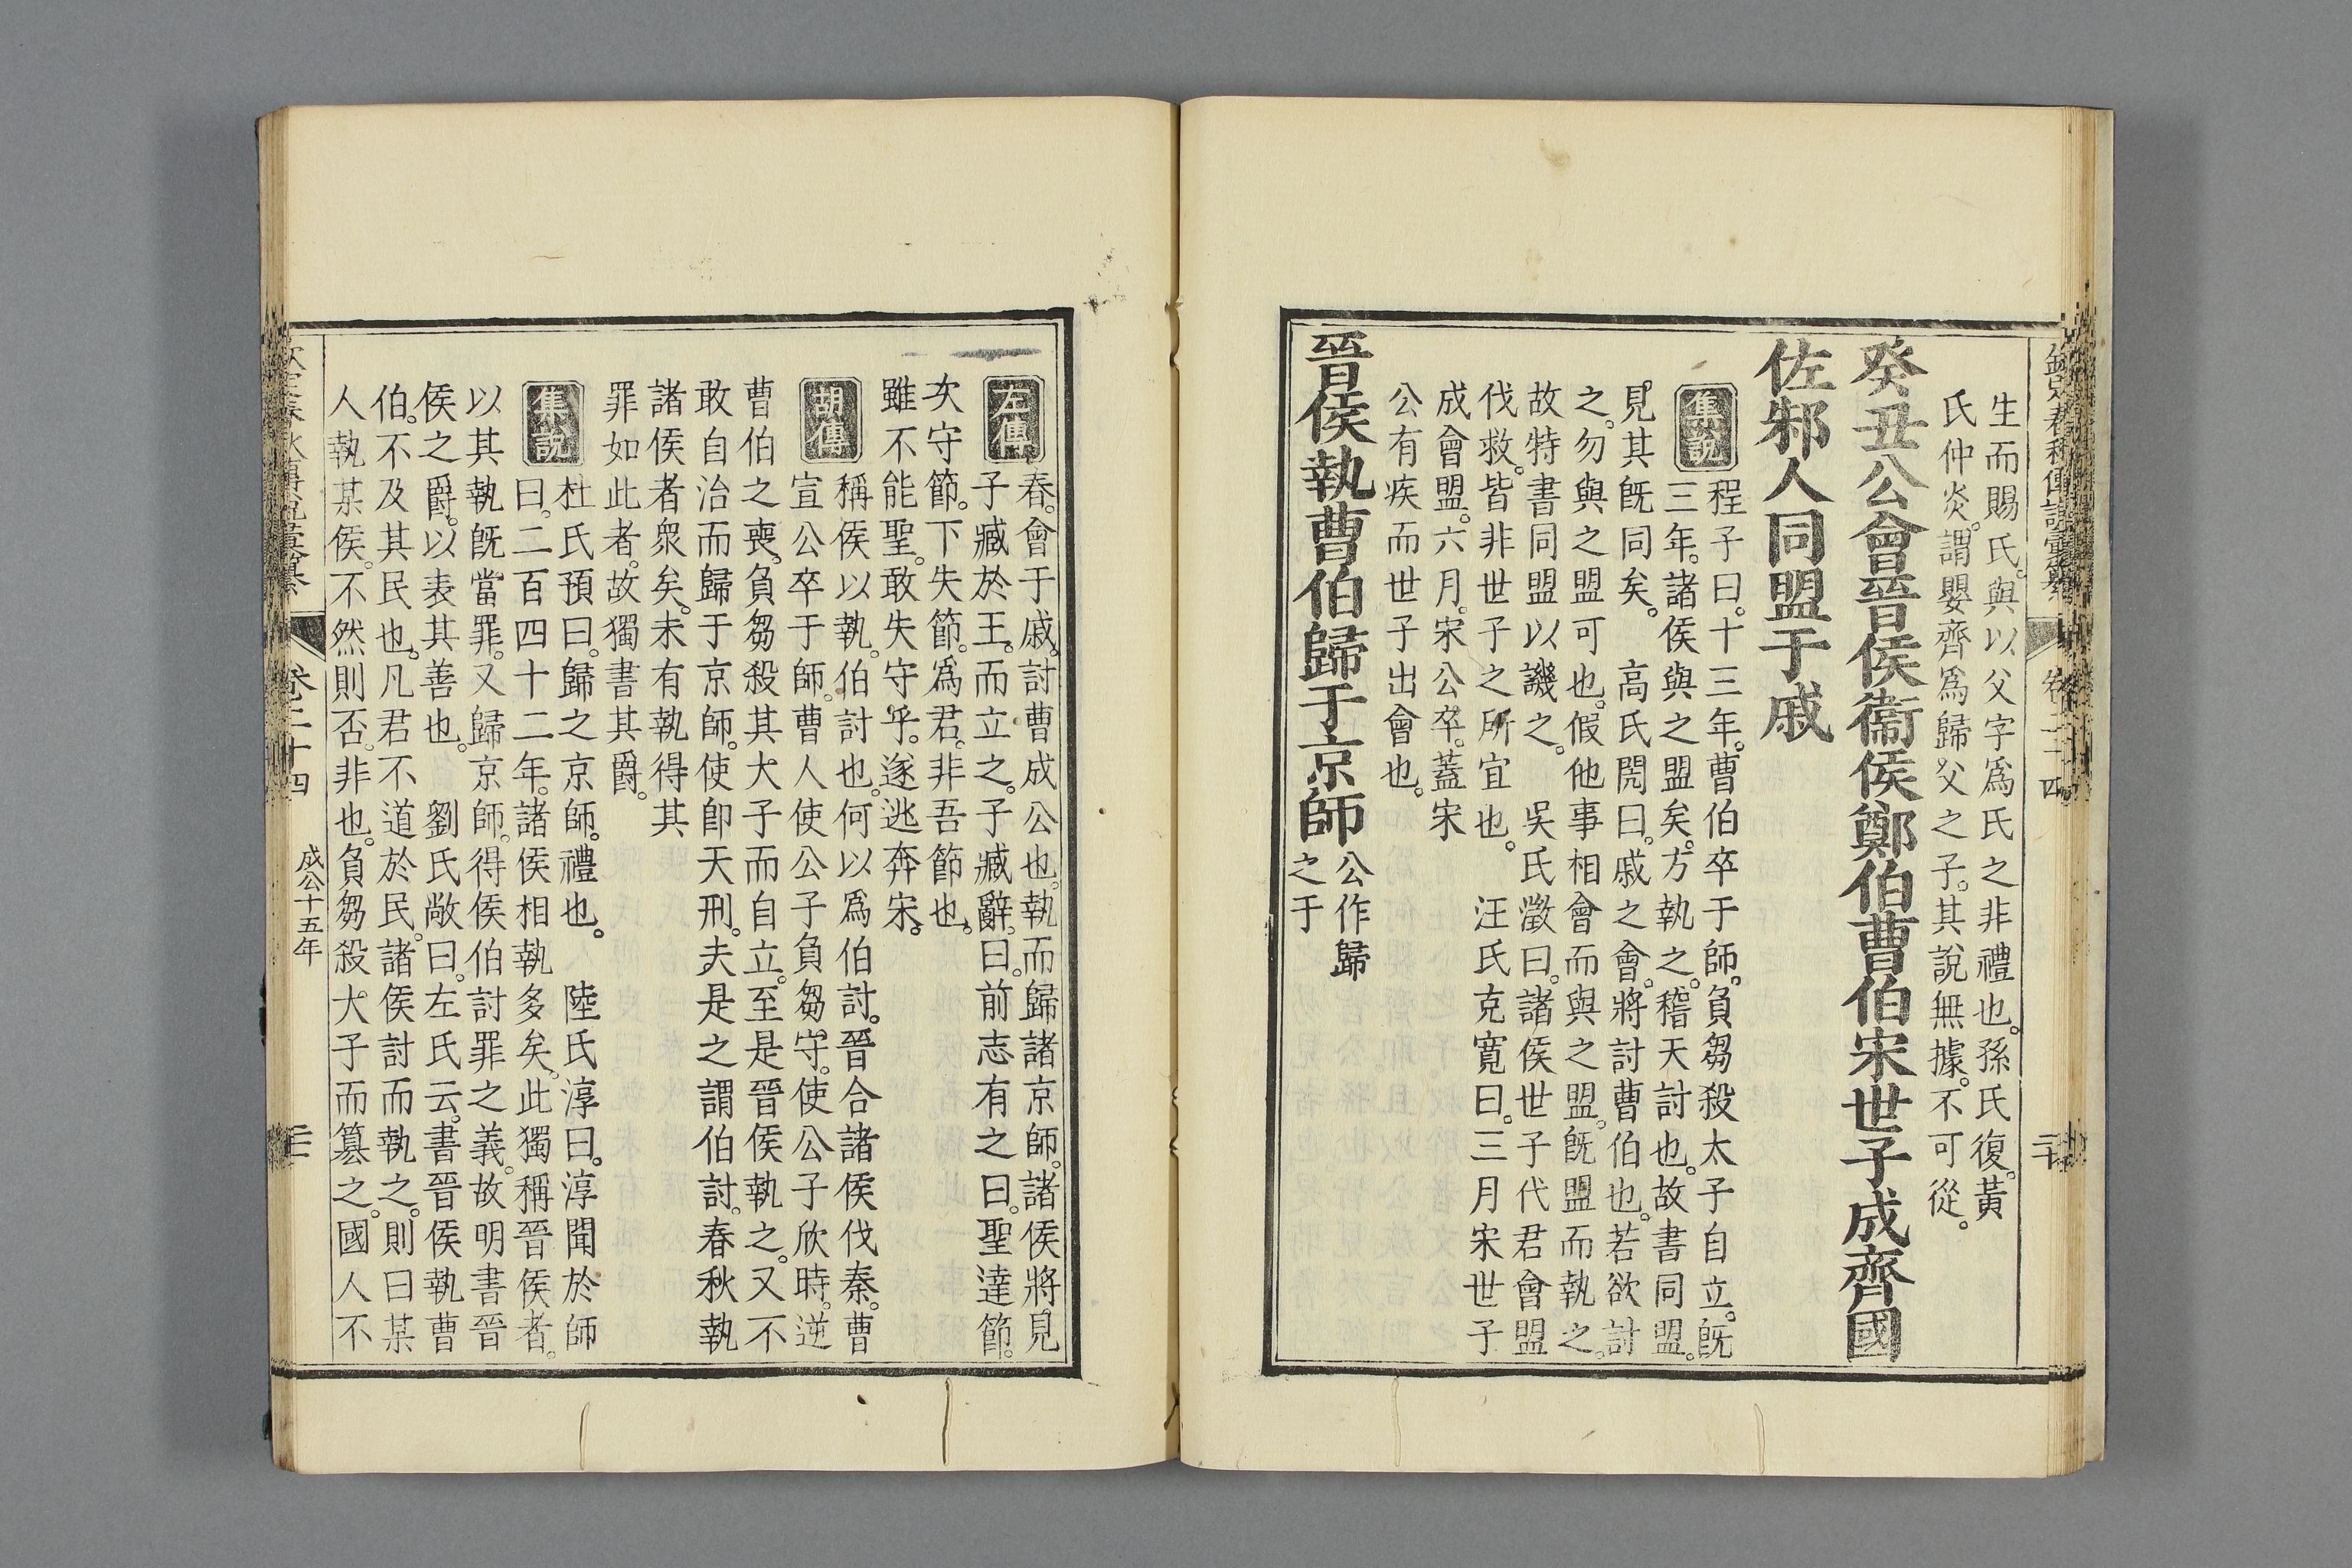 欽定春秋傳說彙纂 卷二十四
生而賜氏。與以父字爲氏之非禮也。孫氏復。黃
氏仲炎。謂嬰齊爲歸父之子。其說無據。不可從。
癸丑公會晉侯衞侯鄭伯曹伯宋世子成齊國
佐邾人同盟于戚
集說 程子曰。十三年。曹伯卒于師。負芻殺太子自立。旣
三年。諸侯與之盟矣。方執之。稽天討也。故書同盟。
見其旣同矣。 高氏閌曰。戚之會。將討曹伯也。若欲討
之。勿與之盟可也。假他事相會而與之盟。旣盟而執之。
故特書同盟以譏之。 吳氏澂曰。諸侯世子代君會盟
伐救。皆非世子之所宜也。 汪氏克寬曰。三月宋世子
成會盟。六月。宋公卒。蓋宋
公有疾而世子出會也。
晉侯執曹伯歸于京師 公作歸
之于
左傳 春。會于戚。討曹成公也。執而歸諸京師。諸侯將見
子臧於王。而立之。子臧辭。曰。前志有之曰。聖達節。
次守節。下失節。爲君。非吾節也。
雖不能聖。敢失守乎。遂逃奔宋。
胡傳 稱侯以執。伯討也。何以爲伯討。晉合諸侯伐秦。曹
宣公卒于師。曹人使公子負芻守。使公子欣時。逆
曹伯之喪。負芻殺其大子而自立。至是晉侯執之。又不
敢自治而歸于京師。使卽天刑。夫是之謂伯討。春秋執
諸侯者衆矣。未有執得其
罪如此者。故獨書其爵。
集說 杜氏預曰。歸之京師。禮也。 陸氏淳曰。淳聞於師
曰。二百四十二年。諸侯相執多矣。此獨稱晉侯者。
以其執旣當罪。又歸京師。得侯伯討罪之義。故明書晉
侯之爵。以表其善也。 劉氏敞曰。左氏云。書晉侯執曹
伯。不及其民也。凡君不道於民。諸侯討而執之。則曰某
人執某侯。不然則否。非也。負芻殺大子而簒之。國人不
欽定春秋傳說彙纂 卷二十四 成公十五年